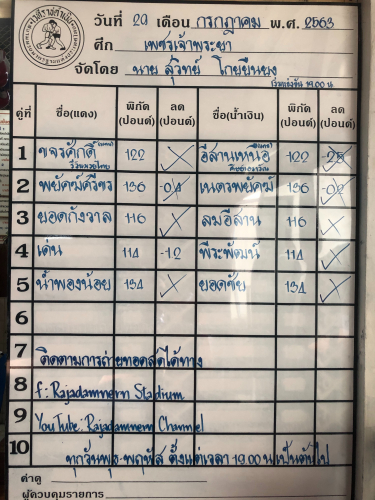 วันที่ 29 เดือน กรกฎาคม พ.ศ. 2563
ศึก เพชรเจ้าพระยา
จัดโดย นาย สุวิทย์ โกยยืนยง
เริ่มแข่งขัน 19.00 น.
คู่ที่ ชื่อ(แดง) พิกัด (ปอนด์) ลด (ปอนด์) ชื่อ(น้ำเงิน) พิกัด (ปอนด์) ลด (ปอนด์)
1 ขจรศักดิ์ 122 อีสานเหนือ 122 -25
2 พยัคฆ์ศิริชร 136 -04 เนตรพยัคฆ์ 136 -02
3 ยอดกังวาล 116 ลมอีสาน 116
4 เด่น 114 -12 พีระพัฒน์ 114
5 น้ำพองน้อย 134 ยอดชัย 134
6
7 ติดตามการถ่ายทอดสดได้ทาง
8 f: Rajadamnern Stadium
9 YouTube: Rajadamnern Channel
10 ทุกวันพุธ-พฤหัส ตั้งแต่เวลา 19.00 น. เป็นต้นไป
ค่าดู
ผู้ควบคุมรายการ